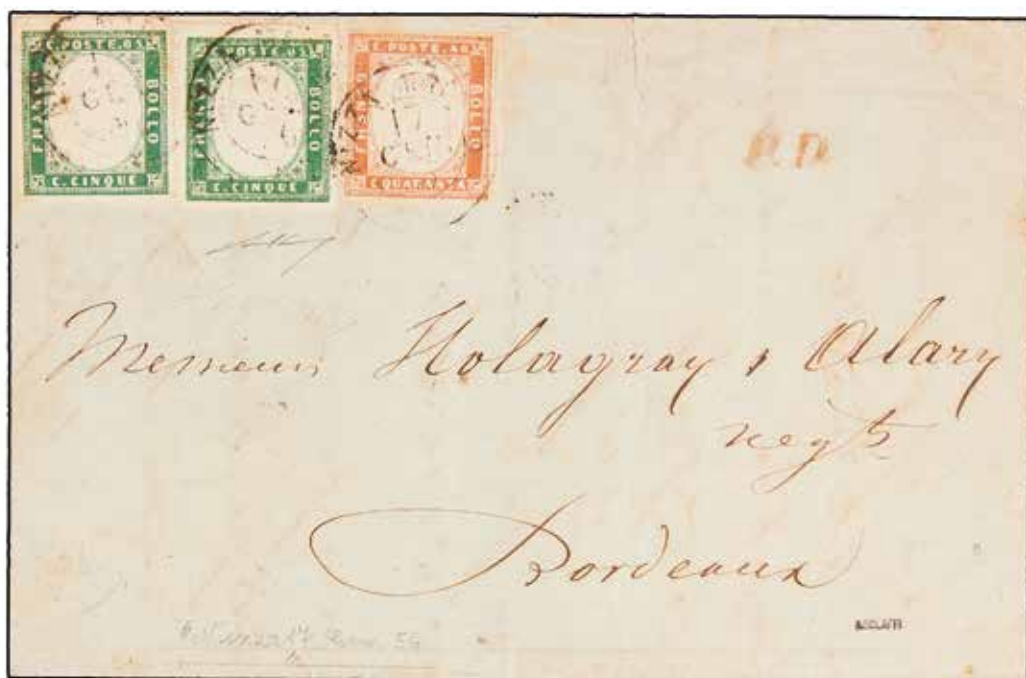 C. POSTE. 05
FRANCO
BOLLO
C. CINQUE
C. POSTE. 05
FRANCO
BOLLO
C. CINQUE
C. POSTE. 40
FRANCO
BOLLO
C. QUARANTA
NIZZA
17
NIZZA
17
GEN
P.D.
Messieurs Holagray & Alary
negts
Bordeaux